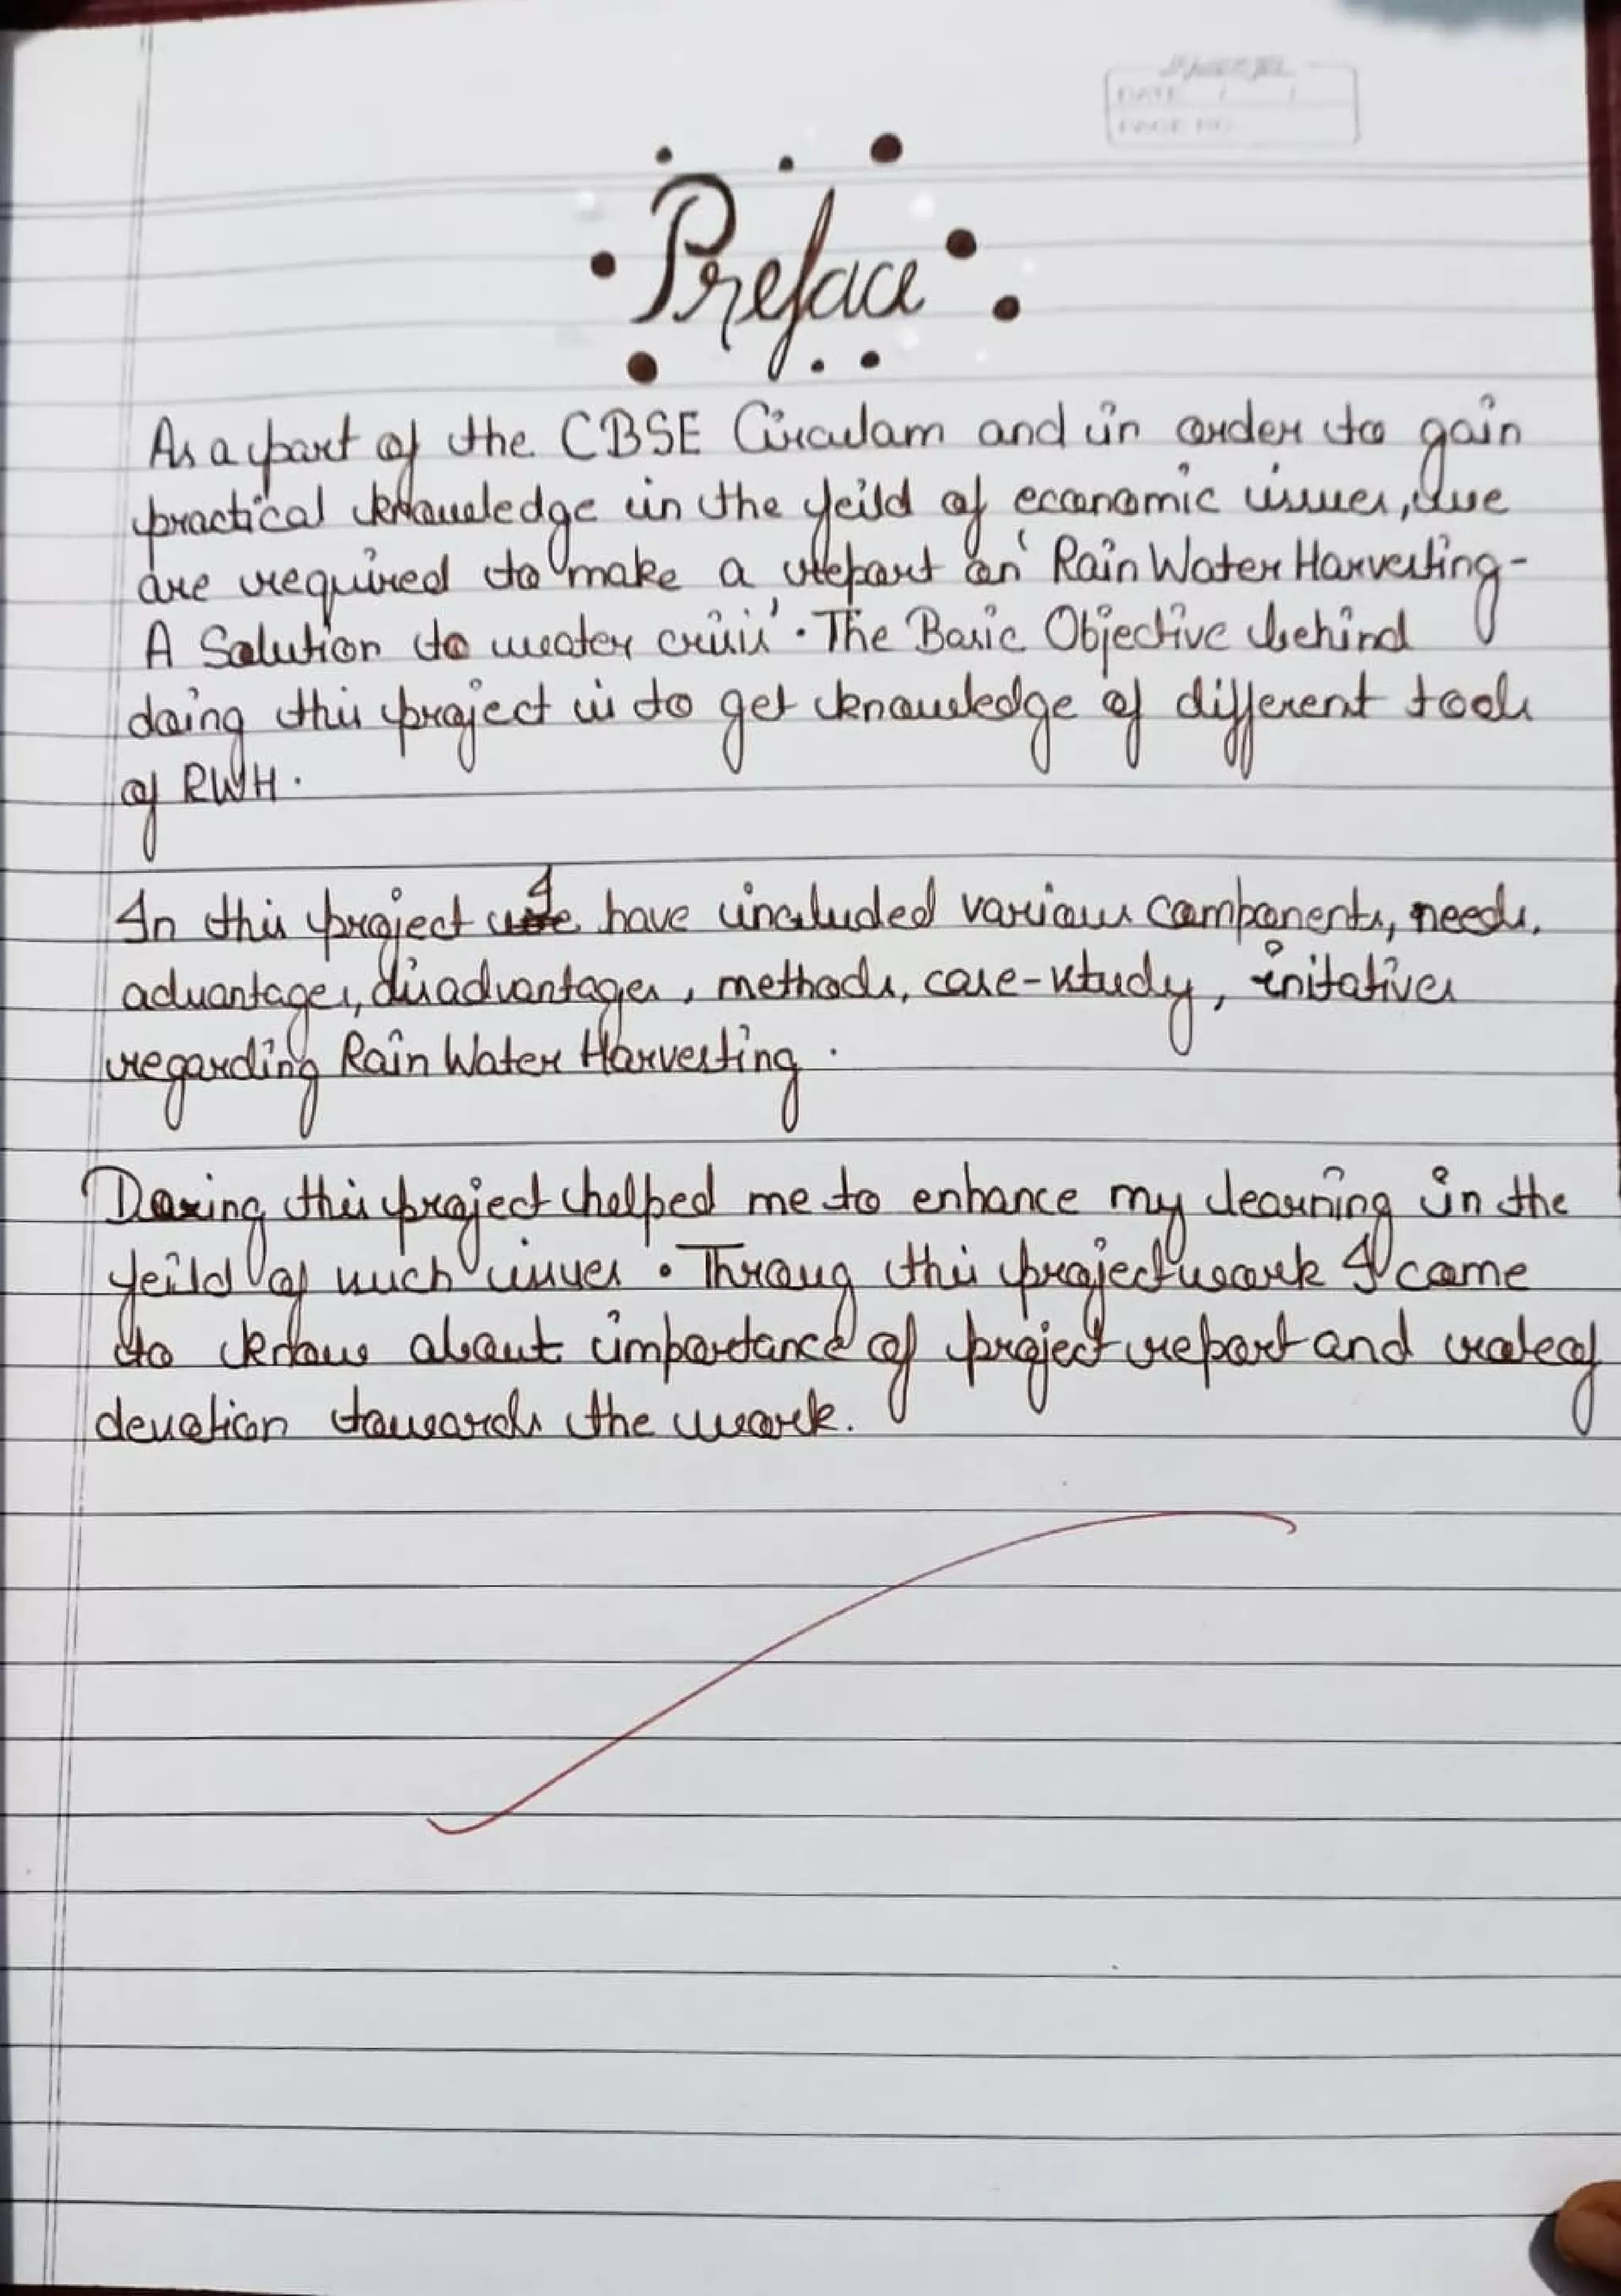 DATE / /
PAGE NO.
Preface
As a part of the CBSE Circulam and in order to gain
practical knowledge in the feild of economic issues, we
are required to make a report on 'Rain Water Harvesting-
A Solution to water crisis'. The Basic Objective behind
doing this project is to get knowledge of different tools
of RWH.
In this project I have included various components, needs,
advantages, disadvantages, methods, case-study, initatives
regarding Rain Water Harvesting.
Doring this project helped me to enhance my learning in the
feild of such issues. Throug this project work I came
to know about importance of project report and role of
devotion towards the work.